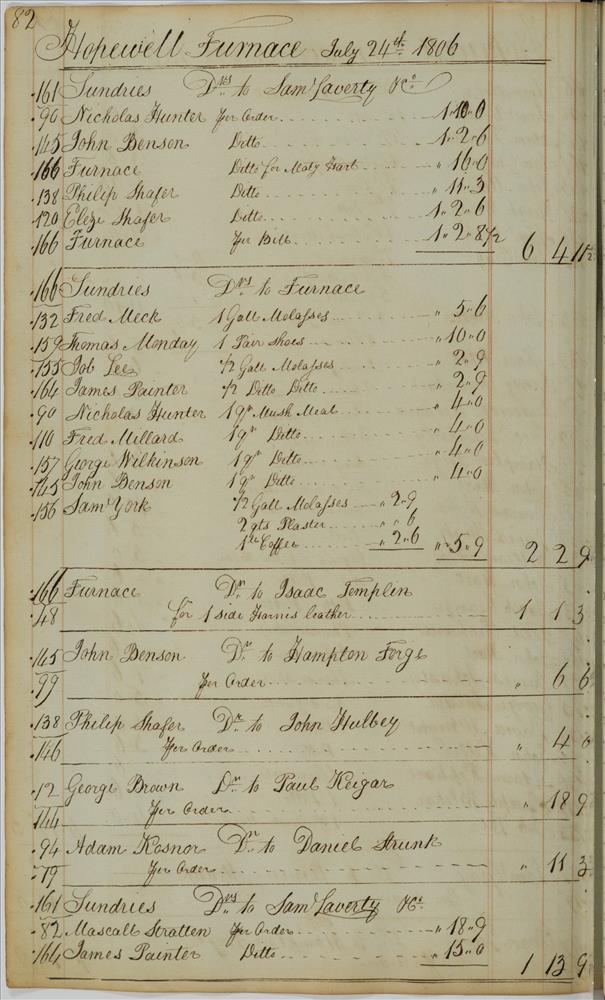 82
Hopewell Furnace July 24th 1806
161 Sundries Drs to Saml Laverty &Co
90 Nicholas Hunter Per Order 1 " 10 " 0
145 John Benson Ditto 1 " 2 " 6
166 Furnace Ditto for Maty Hart " 16 " 0
138 Philip Shafer Ditto " 11 " 3
120 Eleze Shafer Ditto 1 " 2 " 6
166 Furnace Per Bill 1 " 2 " 8 1/2 6 4 11 1/2
166 Sundries Drs to Furnace
132 Fred Meck 1 Gall Molasses " 5 " 6
159 Thomas Monday 1 Pair Shoes " 10 " 0
155 Job Lee 1/2 Gall Molasses " 2 " 9
164 James Painter 1/2 Ditto Ditto " 2 " 9
90 Nicholas Hunter 1 qr Mush Meal " 4 " 0
110 Fred Millard 1 qr Ditto " 4 " 0
157 George Wilkinson 1 qr Ditto " 4 " 0
145 John Benson 1 qr Ditto " 4 " 0
156 Saml York 1/2 Gall Molasses " 2 " 9
2 qts Plaster " " 6
1 lb Coffee " 2 " 6 " 5 " 9 2 2 9
166 Furnace Dr to Isaac Templin
48 for 1 side Harnis leather 1 1 3
145 John Benson Dr to Hampton Forge
99 Per Order " 6 6
138 Philip Shafer Dr to John Hulbey
146 Per Order " 4 0
12 George Brown Dr to Paul Keigar
144 Per Order " 18 9
94 Adam Kosnor Dr to Daniel Strunk
79 Per Order " 11 3
161 Sundries Drs to Saml Laverty &Co
82 Mascall Stratten Per Order " 18 " 9
164 James Painter Ditto " 15 " 0 1 13 9